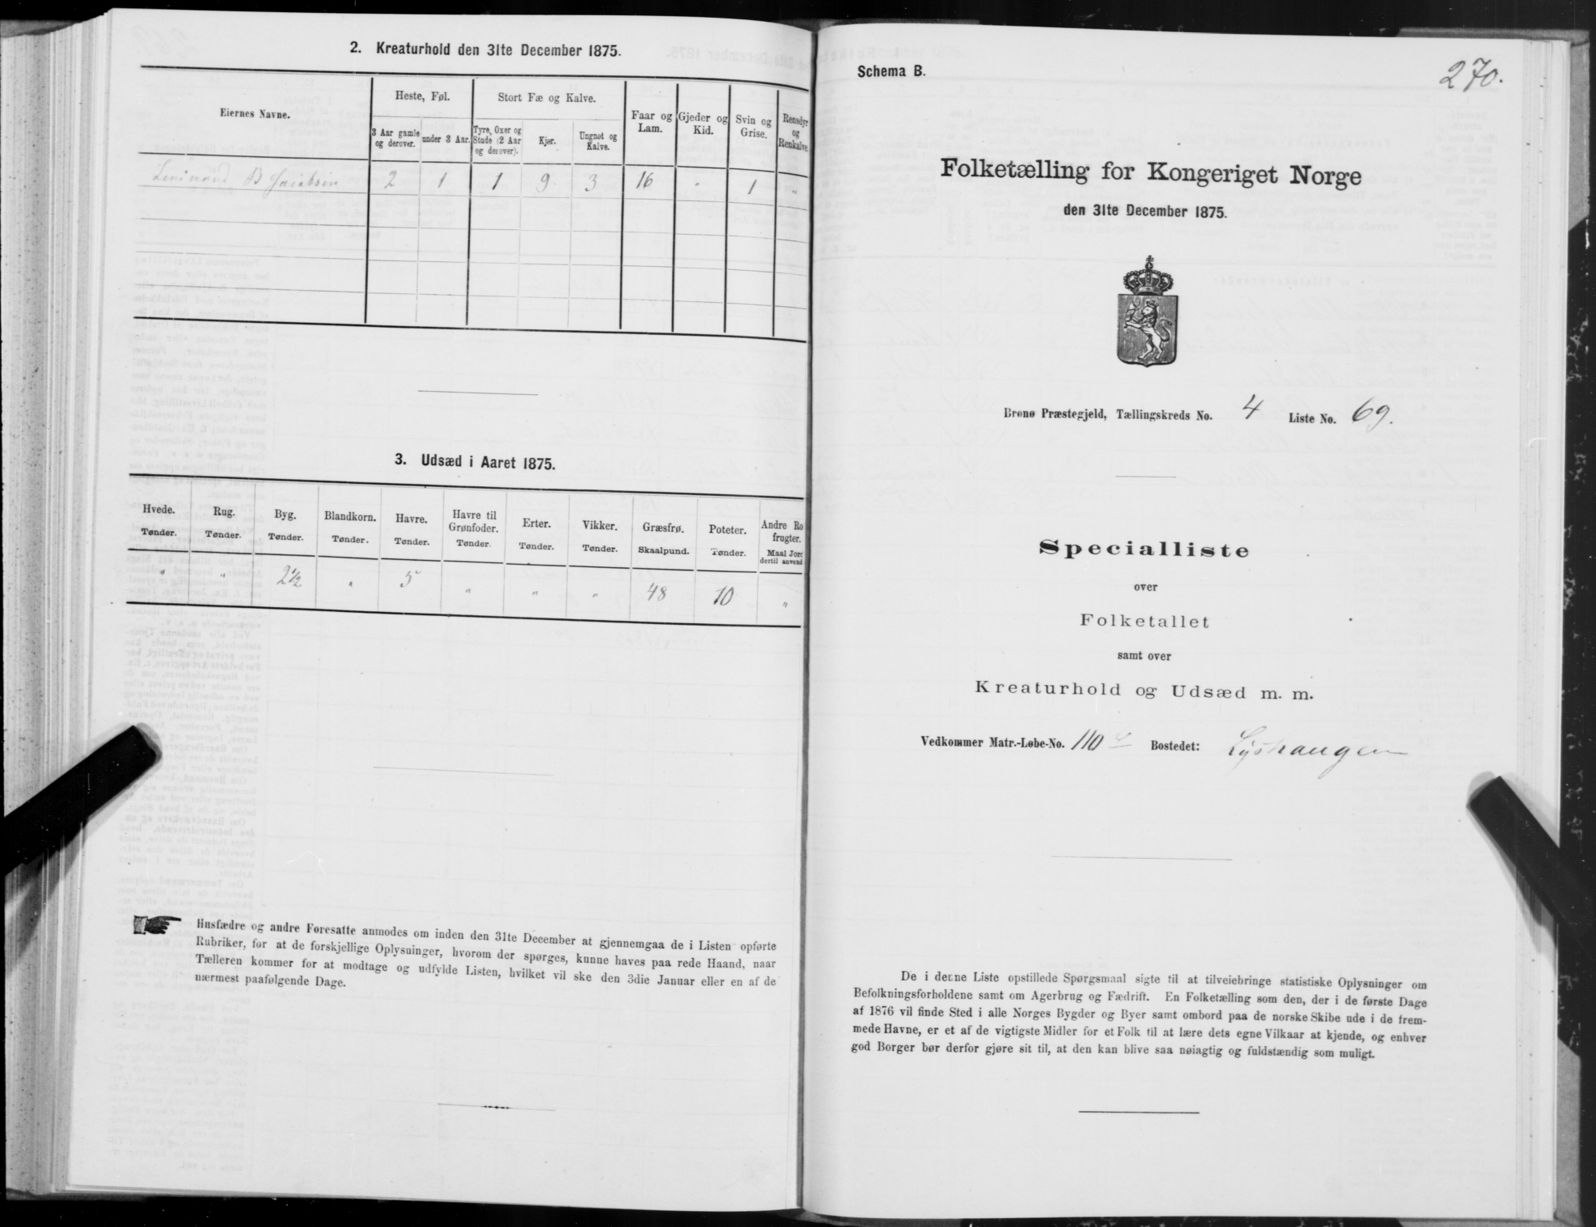 2. Kreaturhold den 31te December 1875.
Eiernes Navne.
Heste, Føl.
Stort Fæ og Kalve.
Faar og Lam.
Gjeder og Kid.
Svin og Grise.
Rensdyr og Renkalve
3 Aar gamle og derover.
under 3 Aar.
Tyre, Oxer og Stude (2 Aar og derover).
Kjør.
Ungnøt og Kalve.
B 2 1 1 9 3 16 - 1 "
3. Udsæd i Aaret 1875.
Hvede. Rug. Byg. Blandkorn. Havre. Havre til Grønfoder. Erter. Vikker. Græsfrø. Poteter. Andre Ro frugter.
Tønder. Tønder. Tønder. Tønder. Tønder. Tønder. Tønder. Tønder. Skaalpund. Tønder. Maal Jor dertil anvend
" " 2½ " 5 " " " 48 10 "
Husfædre og andre Foresatte anmodes om inden den 31te December at gjennemgaa de i Listen opførte
Rubriker, for at de forskjellige Oplysninger, hvorom der spørges, kunne haves paa rede Haand, naar
Tælleren kommer for at modtage og udfylde Listen, hvilket vil ske den 3die Januar eller en af de
nærmest paafølgende Dage.
Schema B.
270.
Folketælling for Kongeriget Norge
den 31te December 1875.
Brønø Præstegjeld, Tællingskreds No. 4 Liste No. 69.
Specialliste
over
Folketallet
samt over
Kreaturhold og Udsæd m. m.
Vedkommer Matr.-Løbe-No. 110 Bostedet: Lyshaugen
De i denne Liste opstillede Spørgsmaal sigte til at tilveiebringe statistiske Oplysninger om
Befolkningsforholdene samt om Agerbrug og Fædrift. En Folketælling som den, der i de første Dage
af 1876 vil finde Sted i alle Norges Bygder og Byer samt ombord paa de norske Skibe ude i de frem-
mede Havne, er et af de vigtigste Midler for et Folk til at lære dets egne Vilkaar at kjende, og enhver
god Borger bør derfor gjøre sit til, at den kan blive saa nøiagtig og fuldstændig som muligt.